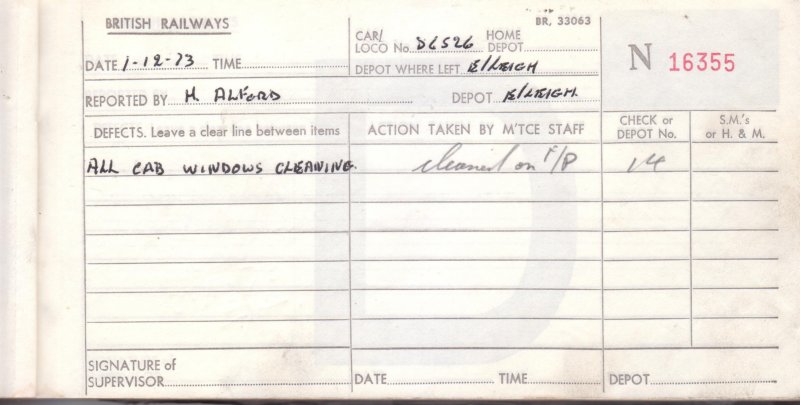 BRITISH RAILWAYS
BR, 33063
CAR/ LOCO No. D6526 HOME DEPOT
N 16355
DATE 1-12-73 TIME
DEPOT WHERE LEFT E/LEIGH
REPORTED BY H ALFORD DEPOT E/LEIGH.
DEFECTS. Leave a clear line between items
ACTION TAKEN BY M'TCE STAFF
CHECK or DEPOT No.
S.M.'s or H. & M.
ALL CAB WINDOWS CLEANING. cleaned on F/P 14
D
SIGNATURE of
SUPERVISOR DATE TIME DEPOT